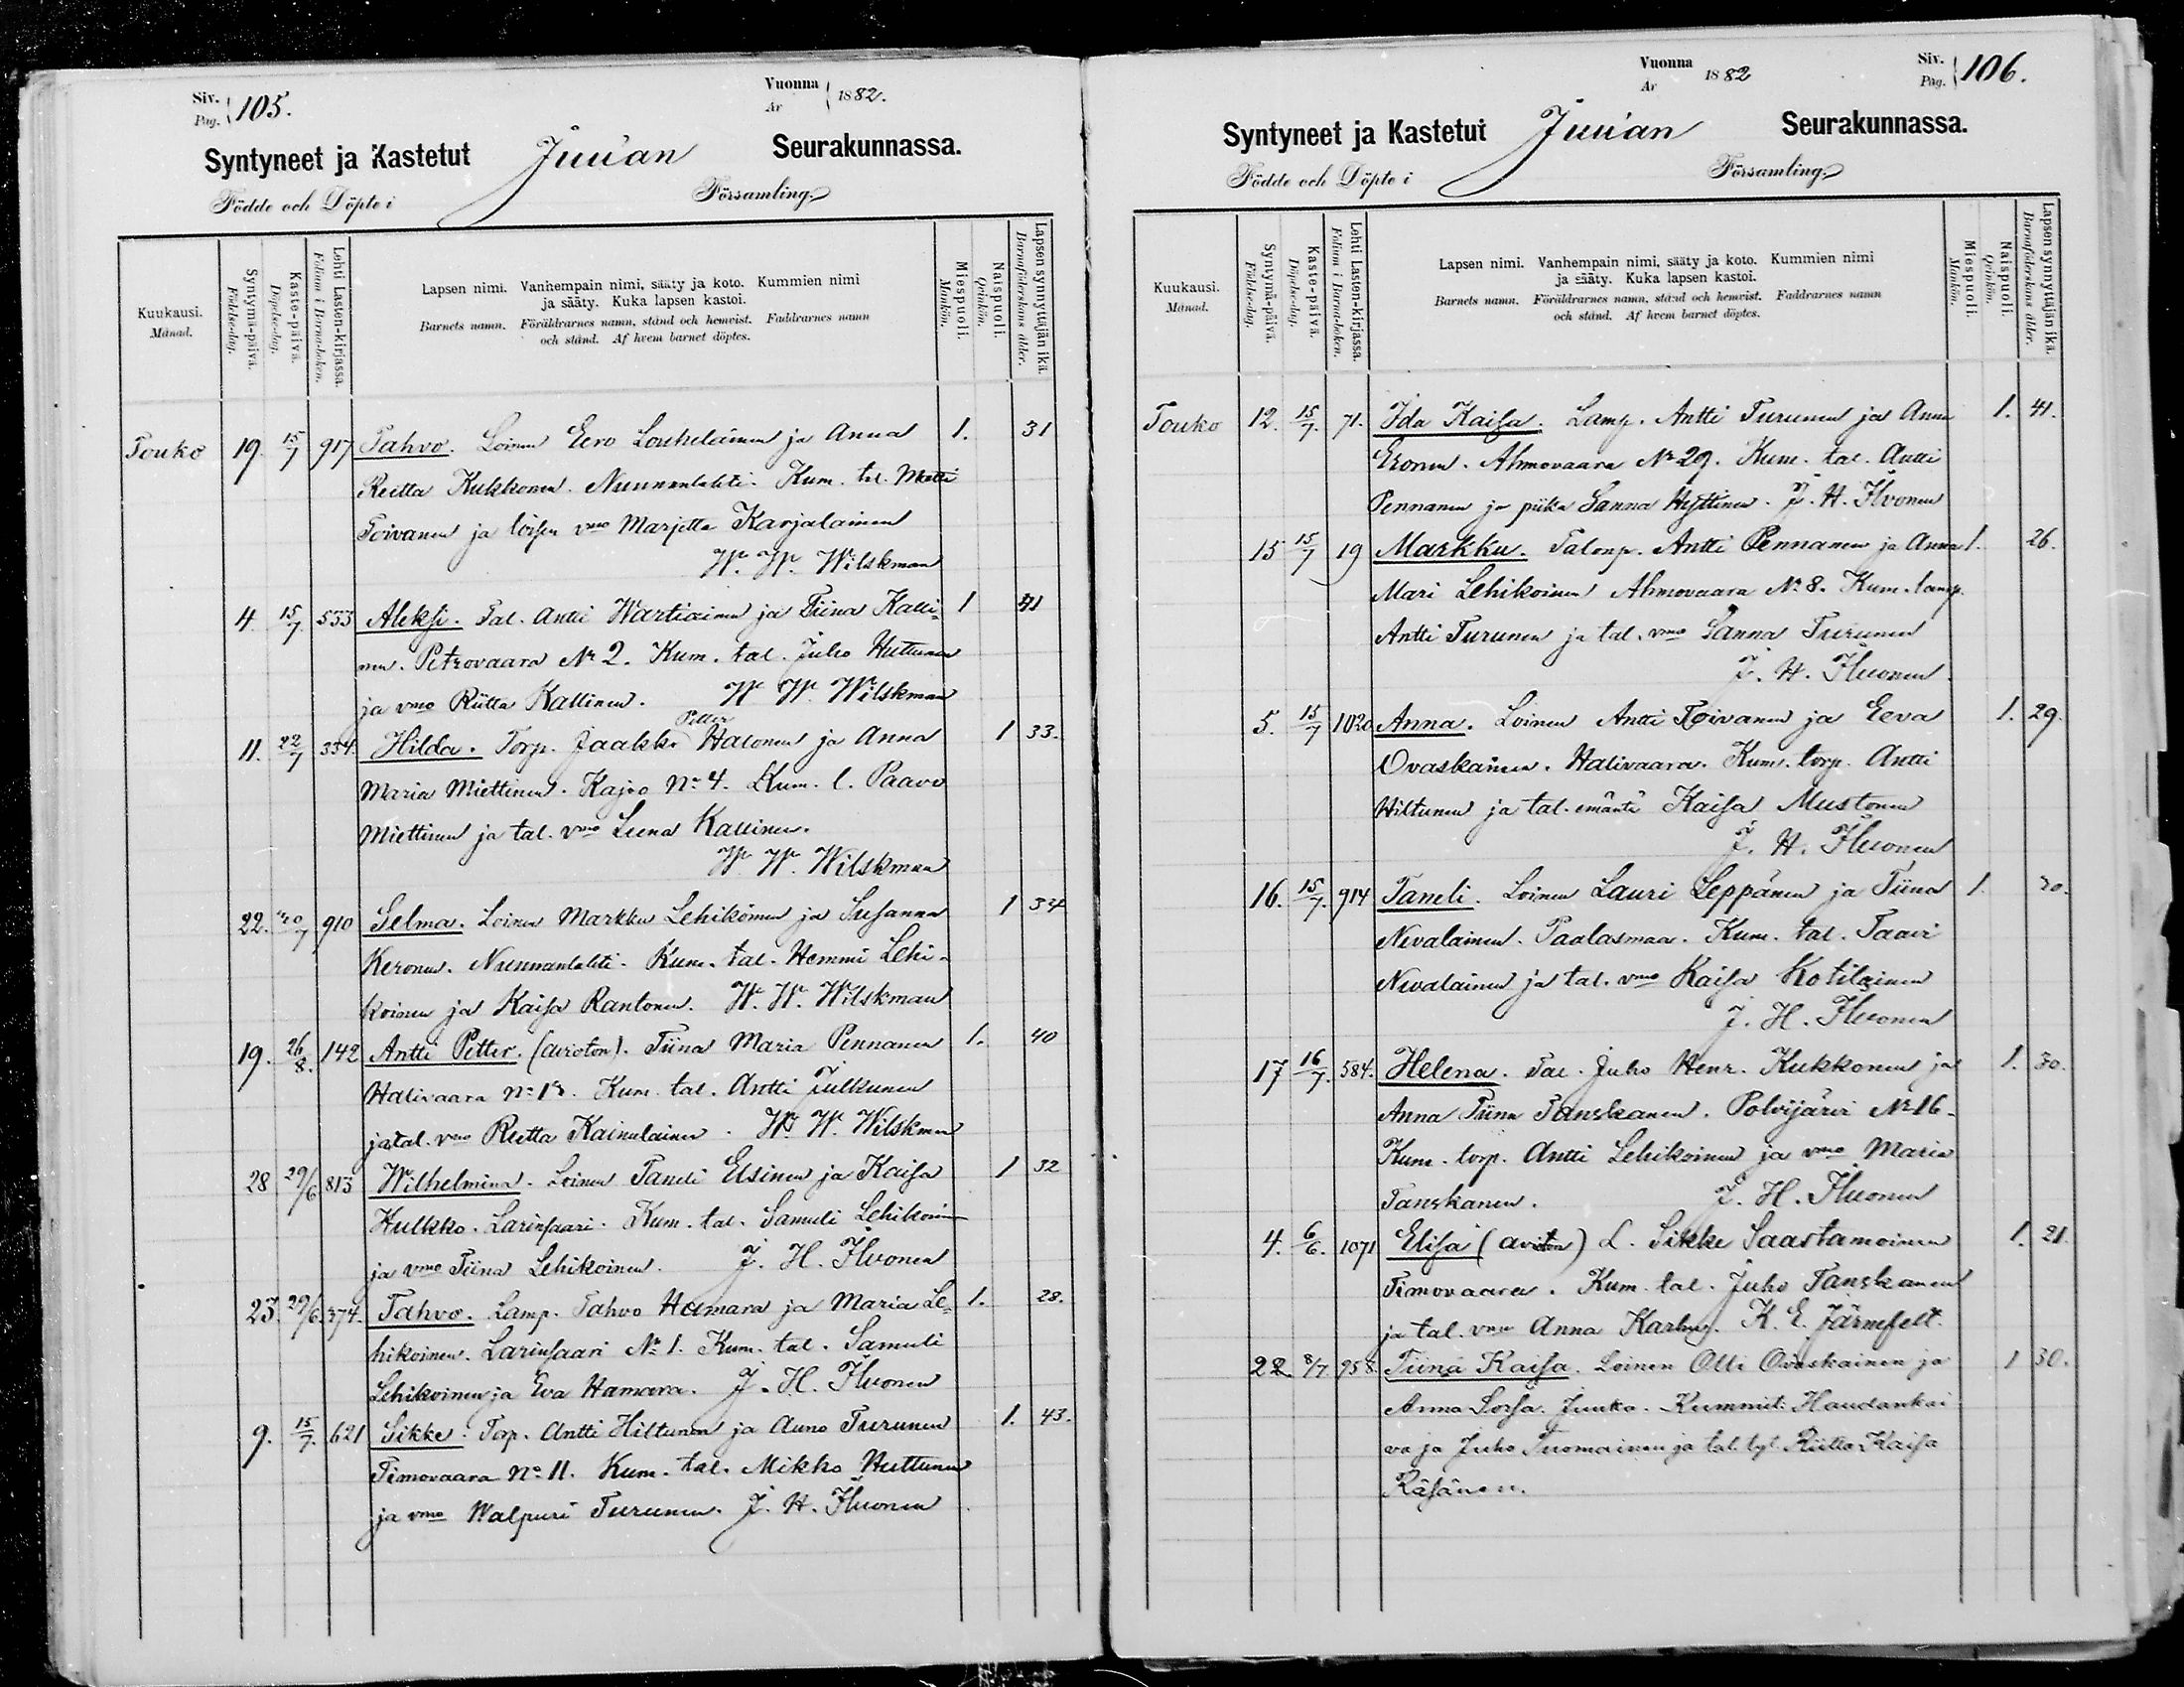 Siv. Pag. 105.
Vuonna År 1882.
Syntyneet ja Kastetut Juuan Seurakunnassa.
Födde och Döpte i Församling.
Kuukausi. Månad.
Syntymä-päivä. Födelse-dag.
Kaste-päivä. Döpelse-dag.
Lehti Lasten-kirjassa. Folium i Barna-boken.
Lapsen nimi. Vanhempain nimi, sääty ja koto. Kummien nimi
ja sääty. Kuka lapsen kastoi.
Barnets namn. Föräldrarnes namn, stånd och hemvist. Faddrarnes namn
och stånd. Af hvem barnet döptes.
Miespuoli. Mankön.
Naispuoli. Qvinkön.
Lapsen synnyttäjän ikä. Barnaföderskans ålder.
Touko 19 15/7 917 Tahvo. Loinen Eero Louhelainen ja Anna 1. 31
Reitta Kukkonen. Nunnanlahti. Kum. tal. Matti
Toivanen ja loisen vmo Marjetta Karjalainen
W. W. Wilskman
4. 15/7. 553 Aleksi. Tal. Antti Wartiainen ja Tiina Kalli- 1 41
nen. Petrovaara No 2. Kum. tal. Juho Huttunen
ja vmo Riitta Kallinen. W W. Wilskman
Petter
11. 22/7 334. Hilda. Torp. Jaakko Halonen ja Anna 1 33.
Maria Miettinen. Kajoo No 4. Kum. l. Paavo
Miettinen ja tal. vmo Leena Kallinen.
W. W. Wilskman
22. 30/7 910 Selma. Loinen Markku Lehikoinen ja Susanna 1 34
Keronen. Nunnanlahti. Kum. tal. Hemmi Lehi-
koinen ja Kaisa Rantonen. W. W. Wilskman
19. 26/8. 142 Antti Petter. (avioton). Tiina Maria Pennanen 1. 40
Halivaara No 13. Kum. tal. Antti Julkunen
ja tal. vmo Reetta Kainulainen. W. W. Wilskman
28 29/6 813 Wilhelmina. Loinen Taneli Elsinen ja Kaisa 1 32
Kulkko. Larinsaari. Kum. tal. Samuli Lehikoinen
ja vmo Tiina Lehikoinen. J. H. Ihvonen
23. 29/6. 374. Tahvo. Lamp. Tahvo Hamara ja Maria Le- 1. 28.
hikoinen. Larinsaari No 1. Kum. tal. Samuli
Lehikoinen ja Eva Hamara. J. H. Ihvonen
9. 15/7. 621 Sikke. Torp. Antti Hiltunen ja Auno Turunen 1. 43.
Timovaara No 11. Kum. tal. Mikko Huttunen
ja vmo Walpuri Turunen. J. H. Ihvonen
Vuonna År 1882
Siv. Pag. 106.
Syntyneet ja Kastetut Juuan Seurakunnassa.
Födde och Döpte i Församling.
Kuukausi. Månad.
Syntymä-päivä. Födelse-dag.
Kaste-päivä. Döpelse-dag.
Lehti Lasten-kirjassa. Folium i Barna-boken.
Lapsen nimi. Vanhempain nimi, sääty ja koto. Kummien nimi
ja sääty. Kuka lapsen kastoi.
Barnets namn. Föräldrarnes namn, stånd och hemvist. Faddrarnes namn
och stånd. Af hvem barnet döptes.
Miespuoli. Mankön.
Naispuoli. Qvinkön.
Lapsen synnyttäjän ikä. Barnaföderskans ålder.
Touko 12. 15/7. 71. Ida Kaisa. Lamp. Antti Turunen ja Anna 1. 41.
Eronen. Ahmovaara No 29. Kum. tal. Antti
Pennanen ja piika Sanna Hyttinen. J. H. Ihvonen
15 15/7 19 Markku. Talonp. Antti Pennanen ja Anna 1. 26.
Mari Lehikoinen Ahmovaara No 8. Kum. lamp.
Antti Turunen ja tal. vmo Sanna Turunen
J. H. Ihvonen.
5. 15/7 1020 Anna. Loinen Antti Toivanen ja Eeva 1. 29.
Ovaskainen. Halivaara. Kum. torp. Antti
Hiltunen ja tal. emäntä Kaisa Mustonen
J. H. Ihvonen
16. 15/7. 914 Taneli. Loinen Lauri Leppänen ja Tiina 1. 30.
Nevalainen. Paalasmaa. Kum. tal. Taavi
Nevalainen ja tal. vmo Kaisa Kotilainen
J. H. Ihvonen
17 16/7. 584. Helena. Tal. Juho Henr. Kukkonen ja 1. 30.
Anna Tiina Tanskanen. Polvijärvi No 16.
Kum. torp. Antti Lehikoinen ja vmo Maria
Tanskanen. J. H. Ihvonen
4. 6/6. 1071 Elisa (avioton) L. Sikke Saastamoinen 1. 21.
Timovaara. Kum. tal. Juho Tanskanen
ja tal. vmo Anna K. E. Järnefelt.
22. 8/7. 958. Tiina Kaisa. Loinen Olli Ovaskainen ja 1 30.
Anna Sorsa. Juuka. Kummit: Haudankai
va ja Juho Tuomainen ja tal. tyt. Riitta Kaisa
Räsänen.